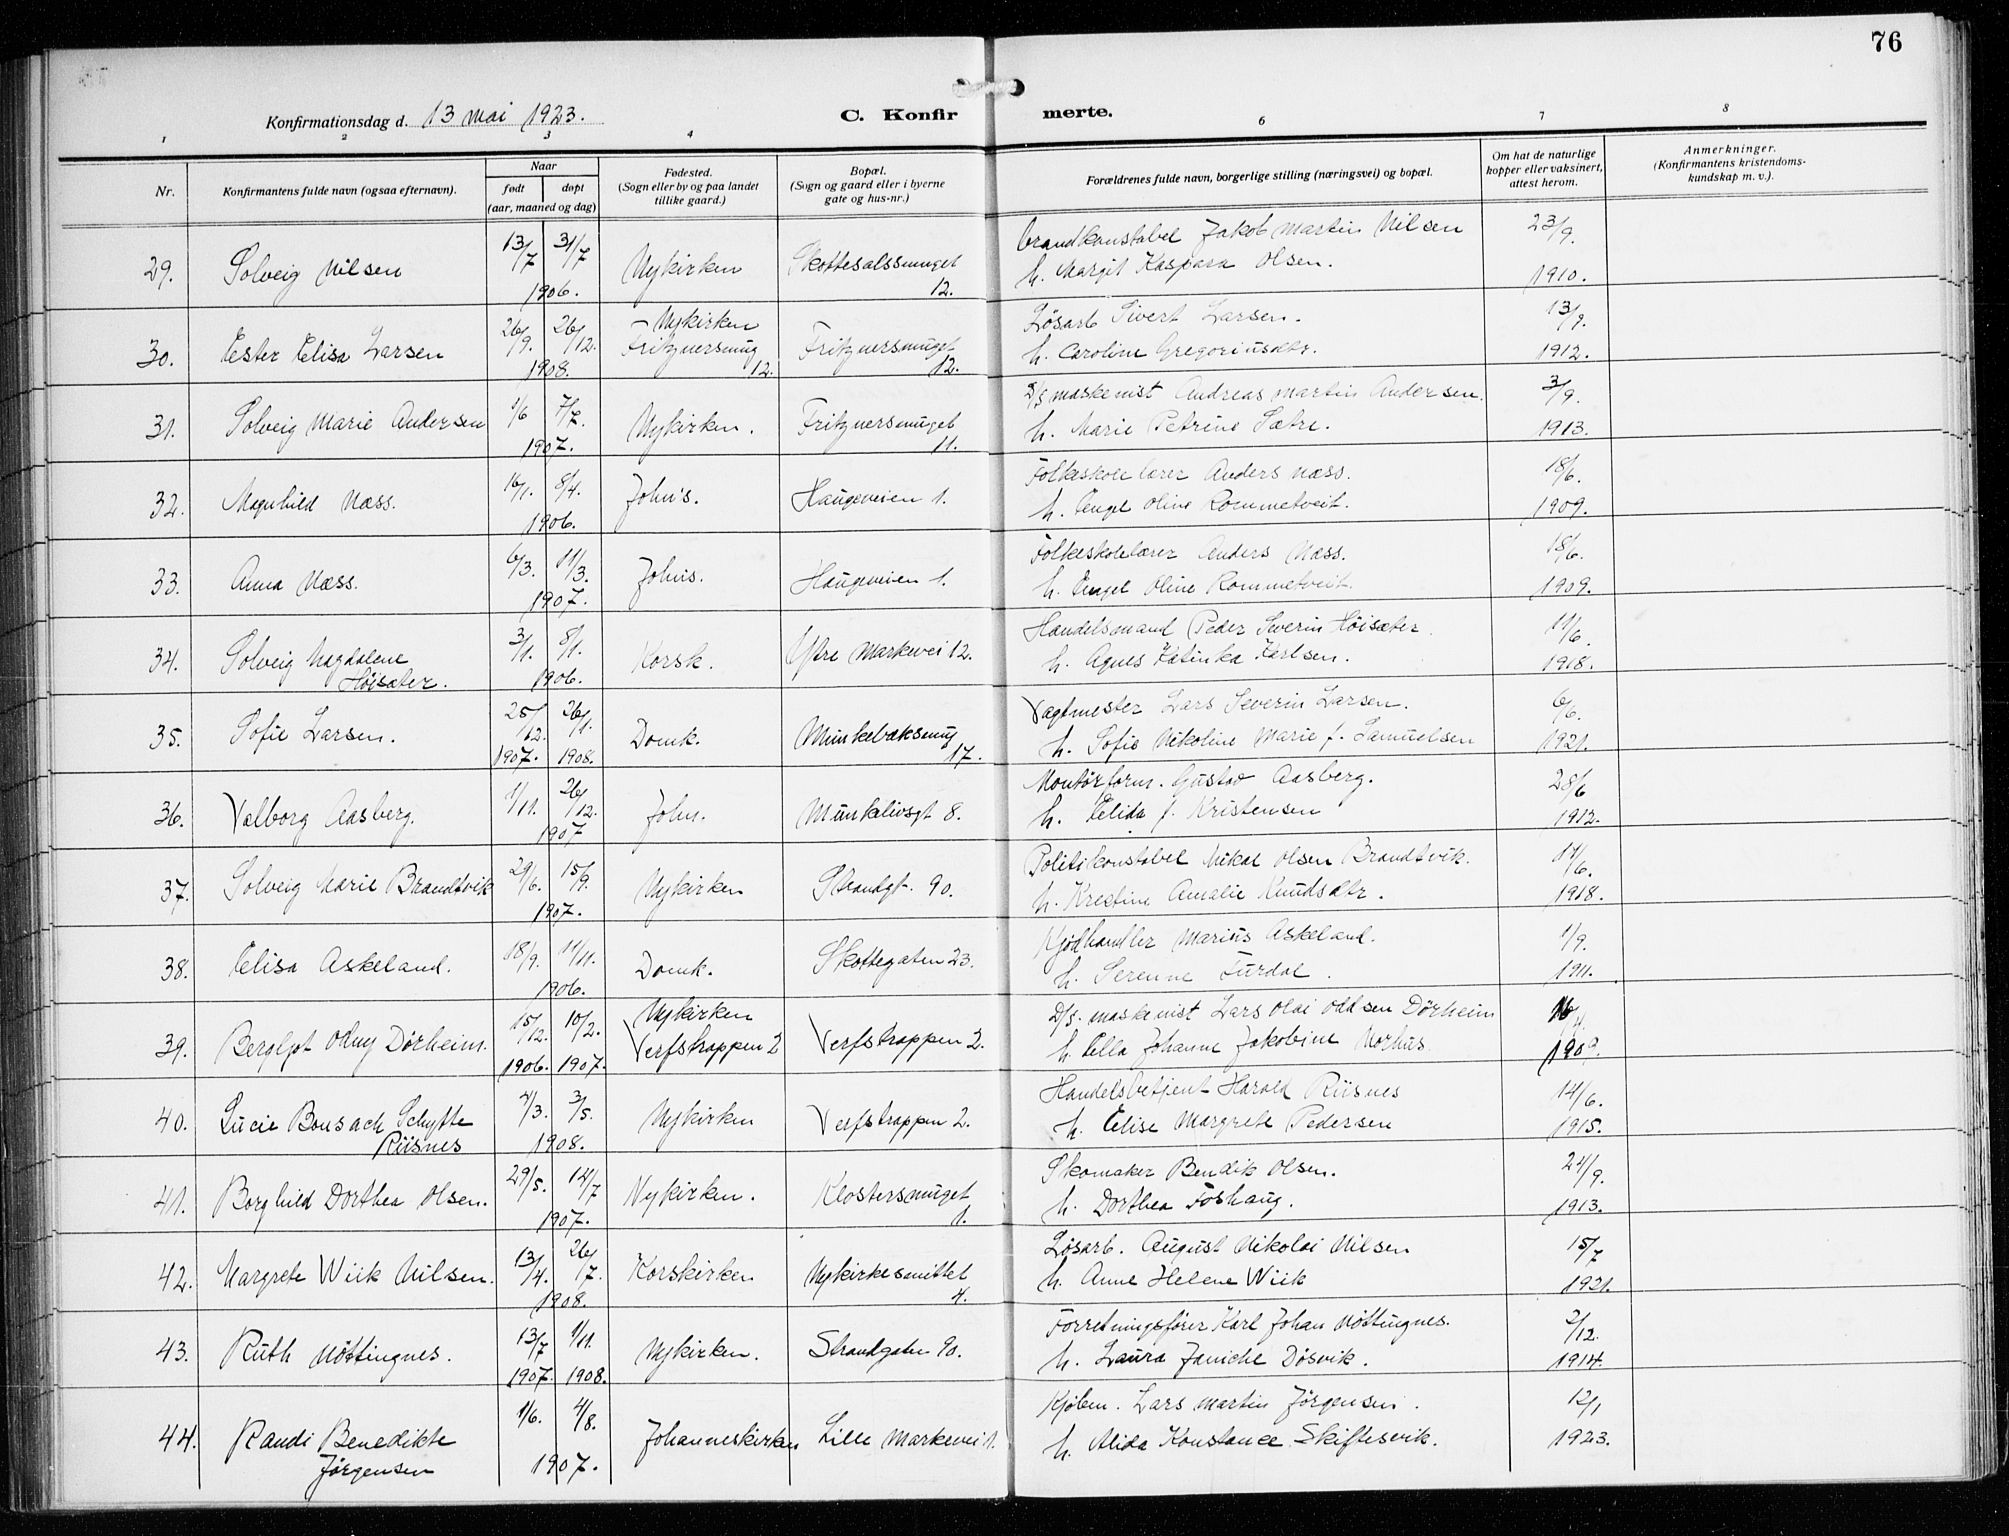 76
Konfirmationsdag d. 13 mai 1923.
C. Konfirmerte.
1 2 3 4 6 7 8
Nr.
Konfirmantens fulde navn (ogsaa efternavn).
Naar
født døpt
(aar, maaned og dag)
Fødested.
(Sogn eller by og paa landet
tillike gaard.)
Bopæl.
(Sogn og gaard eller i byerne
gate og hus-nr.)
Forældrenes fulde navn, borgerlige stilling (næringsvei) og bopæl.
Om hat de naturlige
kopper eller vaksinert,
attest herom.
Anmerkninger.
(Konfirmantens kristendoms-
kundskap m. v.).
13/7 31/7 brandkonstabel Jakob Martin Nilsen 23/9.
29. Solveig Nilsen Nykirken Skottesalssmuget
1906. 12. h. Margit Kaspara Olsen. 1910.
26/9. 26/12. Nykirken Løsarb Sivert Larsen. 13/9.
30. Ester Elisa Larsen Fritznersmug Fritznersmuget
1908. 12. 12. h. Caroline Gregoriusdtr. 1912.
1/6 7/7. D/S maskenist Andreas Martin Andersen. 3/9.
31. Solveig Marie Andersen Nykirken. Fritznersmuget
1907. 11. h. Marie Petrine Sætre. 1913.
16/1. 8/4. Folkeskolelærer Anders Næss. 18/6.
32. Magnhild Næss. Joh's. Haugeveien 1.
1906. h. Engel Oline Rommetveit. 1909.
6/3. 11/3. Folkeskolelærer Anders Næss. 18/6.
33. Anna Næss. Joh's. Haugeveien 1.
1907. h. Engel Oline Rommetveit. 1909.
3/1. 8/1. Handelsmand Peder Severin Høisæter. 11/6.
34. Solveig Magdalene Korsk. Ytre Markevei 12.
Høisæter. 1906. h. Agnes Katinka Karlsen. 1918.
25/12. 26/1. Vagtmester Lars Severin Larsen. 6/6.
35. Sofie Larsen. Domk. Munkebæksmug
1907. 1908. 17. h. Sofie Nikoline Marie f. Samuelsen 1921.
1/11. 26/12. Montørform. Gustav Aasberg. 28/6
36. Valborg Aasberg. Joh. Munkelivsgt 8.
1907 h. Elida f. Kristensen 1912.
29/6. 15/9. Politikonstabel Mikal Olsen Brandtvik. 11/6.
37. Solveig Marie Brandtvik Nykirken Strandgt. 90.
1907. h. Krestine Amalie Knudsdtr. 1918.
18/9. 11/11. Kjødhandler Marius Askeland. 1/9.
38. Elisa Askeland. Domk. Skottegaten 23.
1906. h. Serenne Furdal. 1911.
15/12. 10/2. Nykirken D/S. maskenist Lars Olai Oddsen Dørheim
39. Bergljot Odny Dørheim. Verfstrappen 2 Verfstrappen 2.
1906. 1907. h. Ella Johanne Jakobine Morhus. 1909.
4/3. 3/5. Handelsbetjent Harald Riisnes 14/6.
40. Lucie Bonsach Schytte Nykirken Verfstrappen 2.
Riisnes 1908. h. Elise Margrete Pedersen 1915.
29/5. 14/7 Skomaker Bendik Olsen. 24/9.
41. Borghild Dorthea Olsen. Nykirken. Klostersmuget
1907. 1. h. Dorthea Foshaug. 1913.
13/4. 26/7. Løsarb. August Nikolai Nilsen 15/7
42. Margrete Wiik Nilsen. Korskirken Nykirkesmittet
1908. 4. h. Anne Helene Wiik 1921.
13/7 1/11. Forretningsfører Karl Johan Nøttingnes. 2/12.
43. Ruth Nøttingnes. Nykirken. Strandgaten 90.
1907. 1908. h. Laura Janiche Døsvik. 1914.
1/6. 4/8. Kjøbm. Lars Martin Jørgensen. 12/1
44. Randi Benedikte Johanneskirken Lille Markevei 1.
Jørgensen 1907. h. Alida Konstance Skiftesvik. 1923.